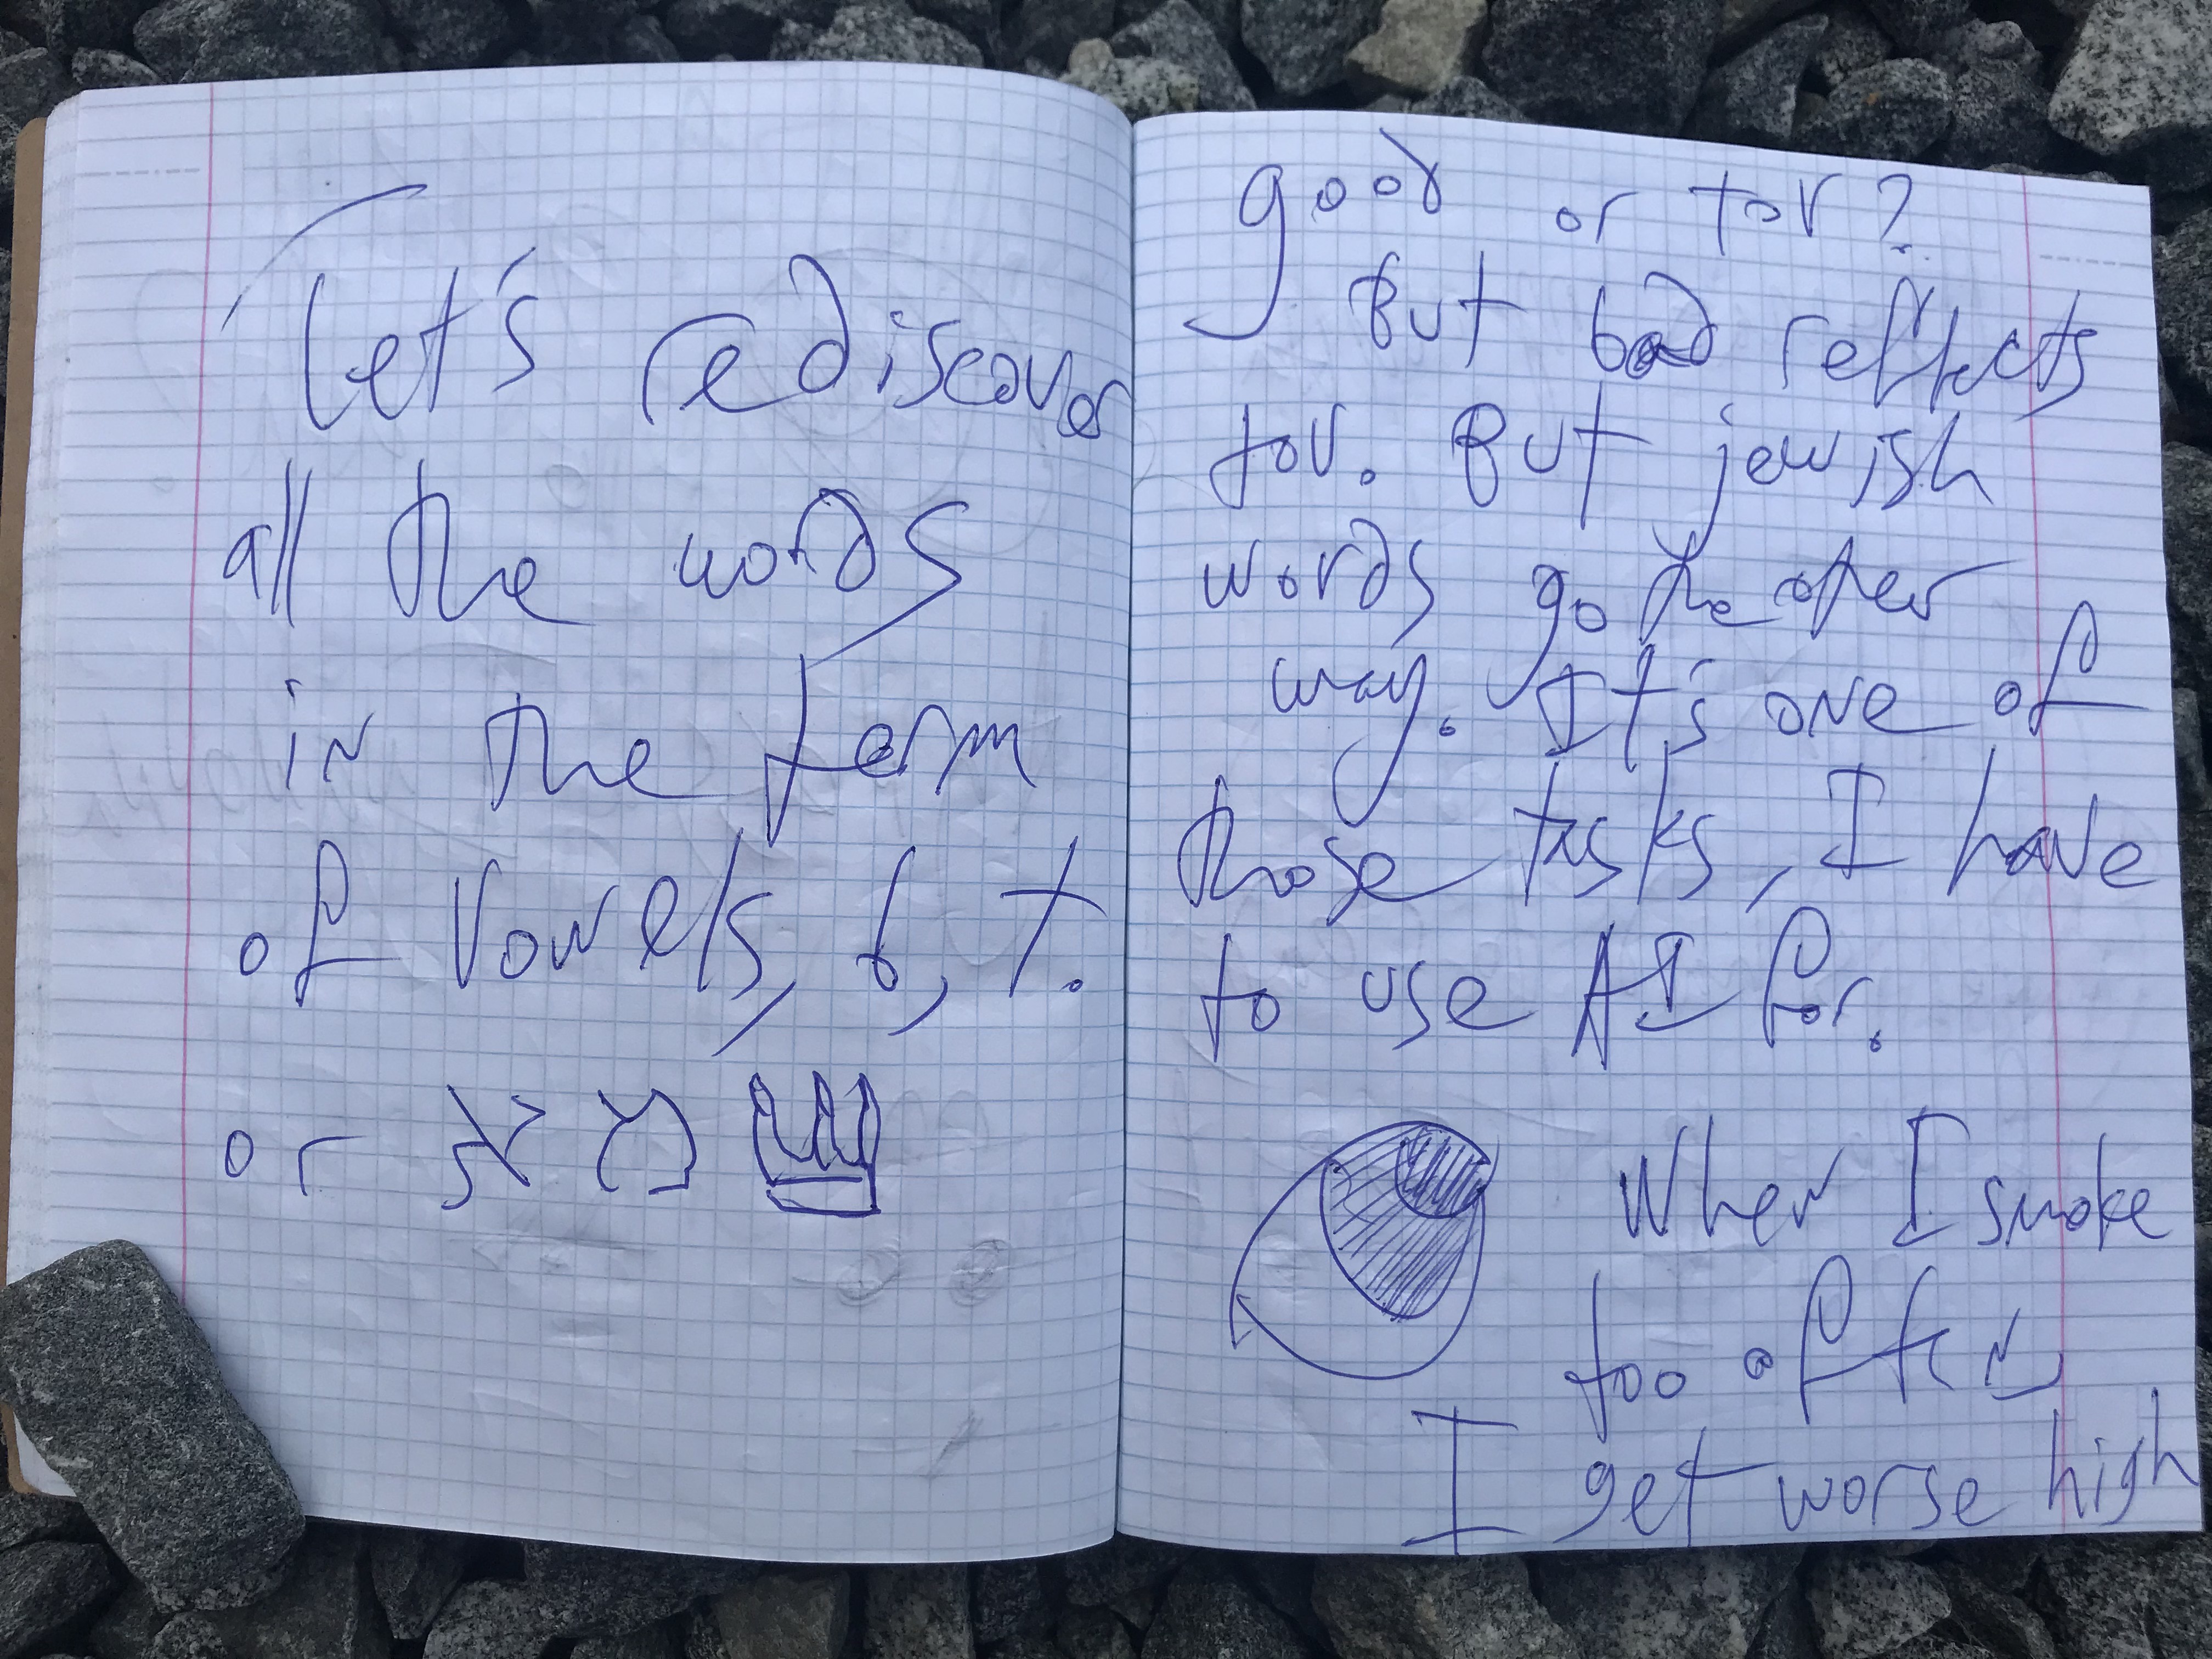 Let's rediscover
all the words
in the term
of vowels,
or א
good or tov?
But bad reflects
tov. But jewish
words go the other
way. It's one of
those tsks, I have
to use AI for.
When I smoke
too often
I get worse high